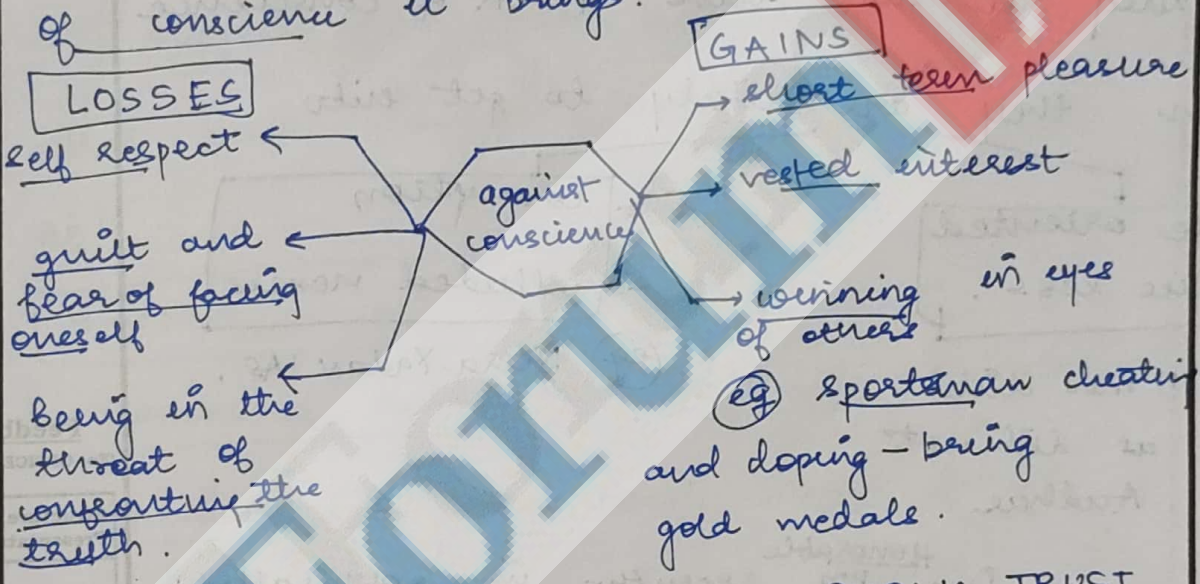 of conscience it brings.
LOSSES
self respect
guilt and
fear of facing
oneself
being in the
threat of
confronting the
truth.
against
conscience
GAINS
short term pleasure
vested interest
winning in eyes
of others
eg sportsman cheating
and doping - bring
gold medals.
TRUST
Forum